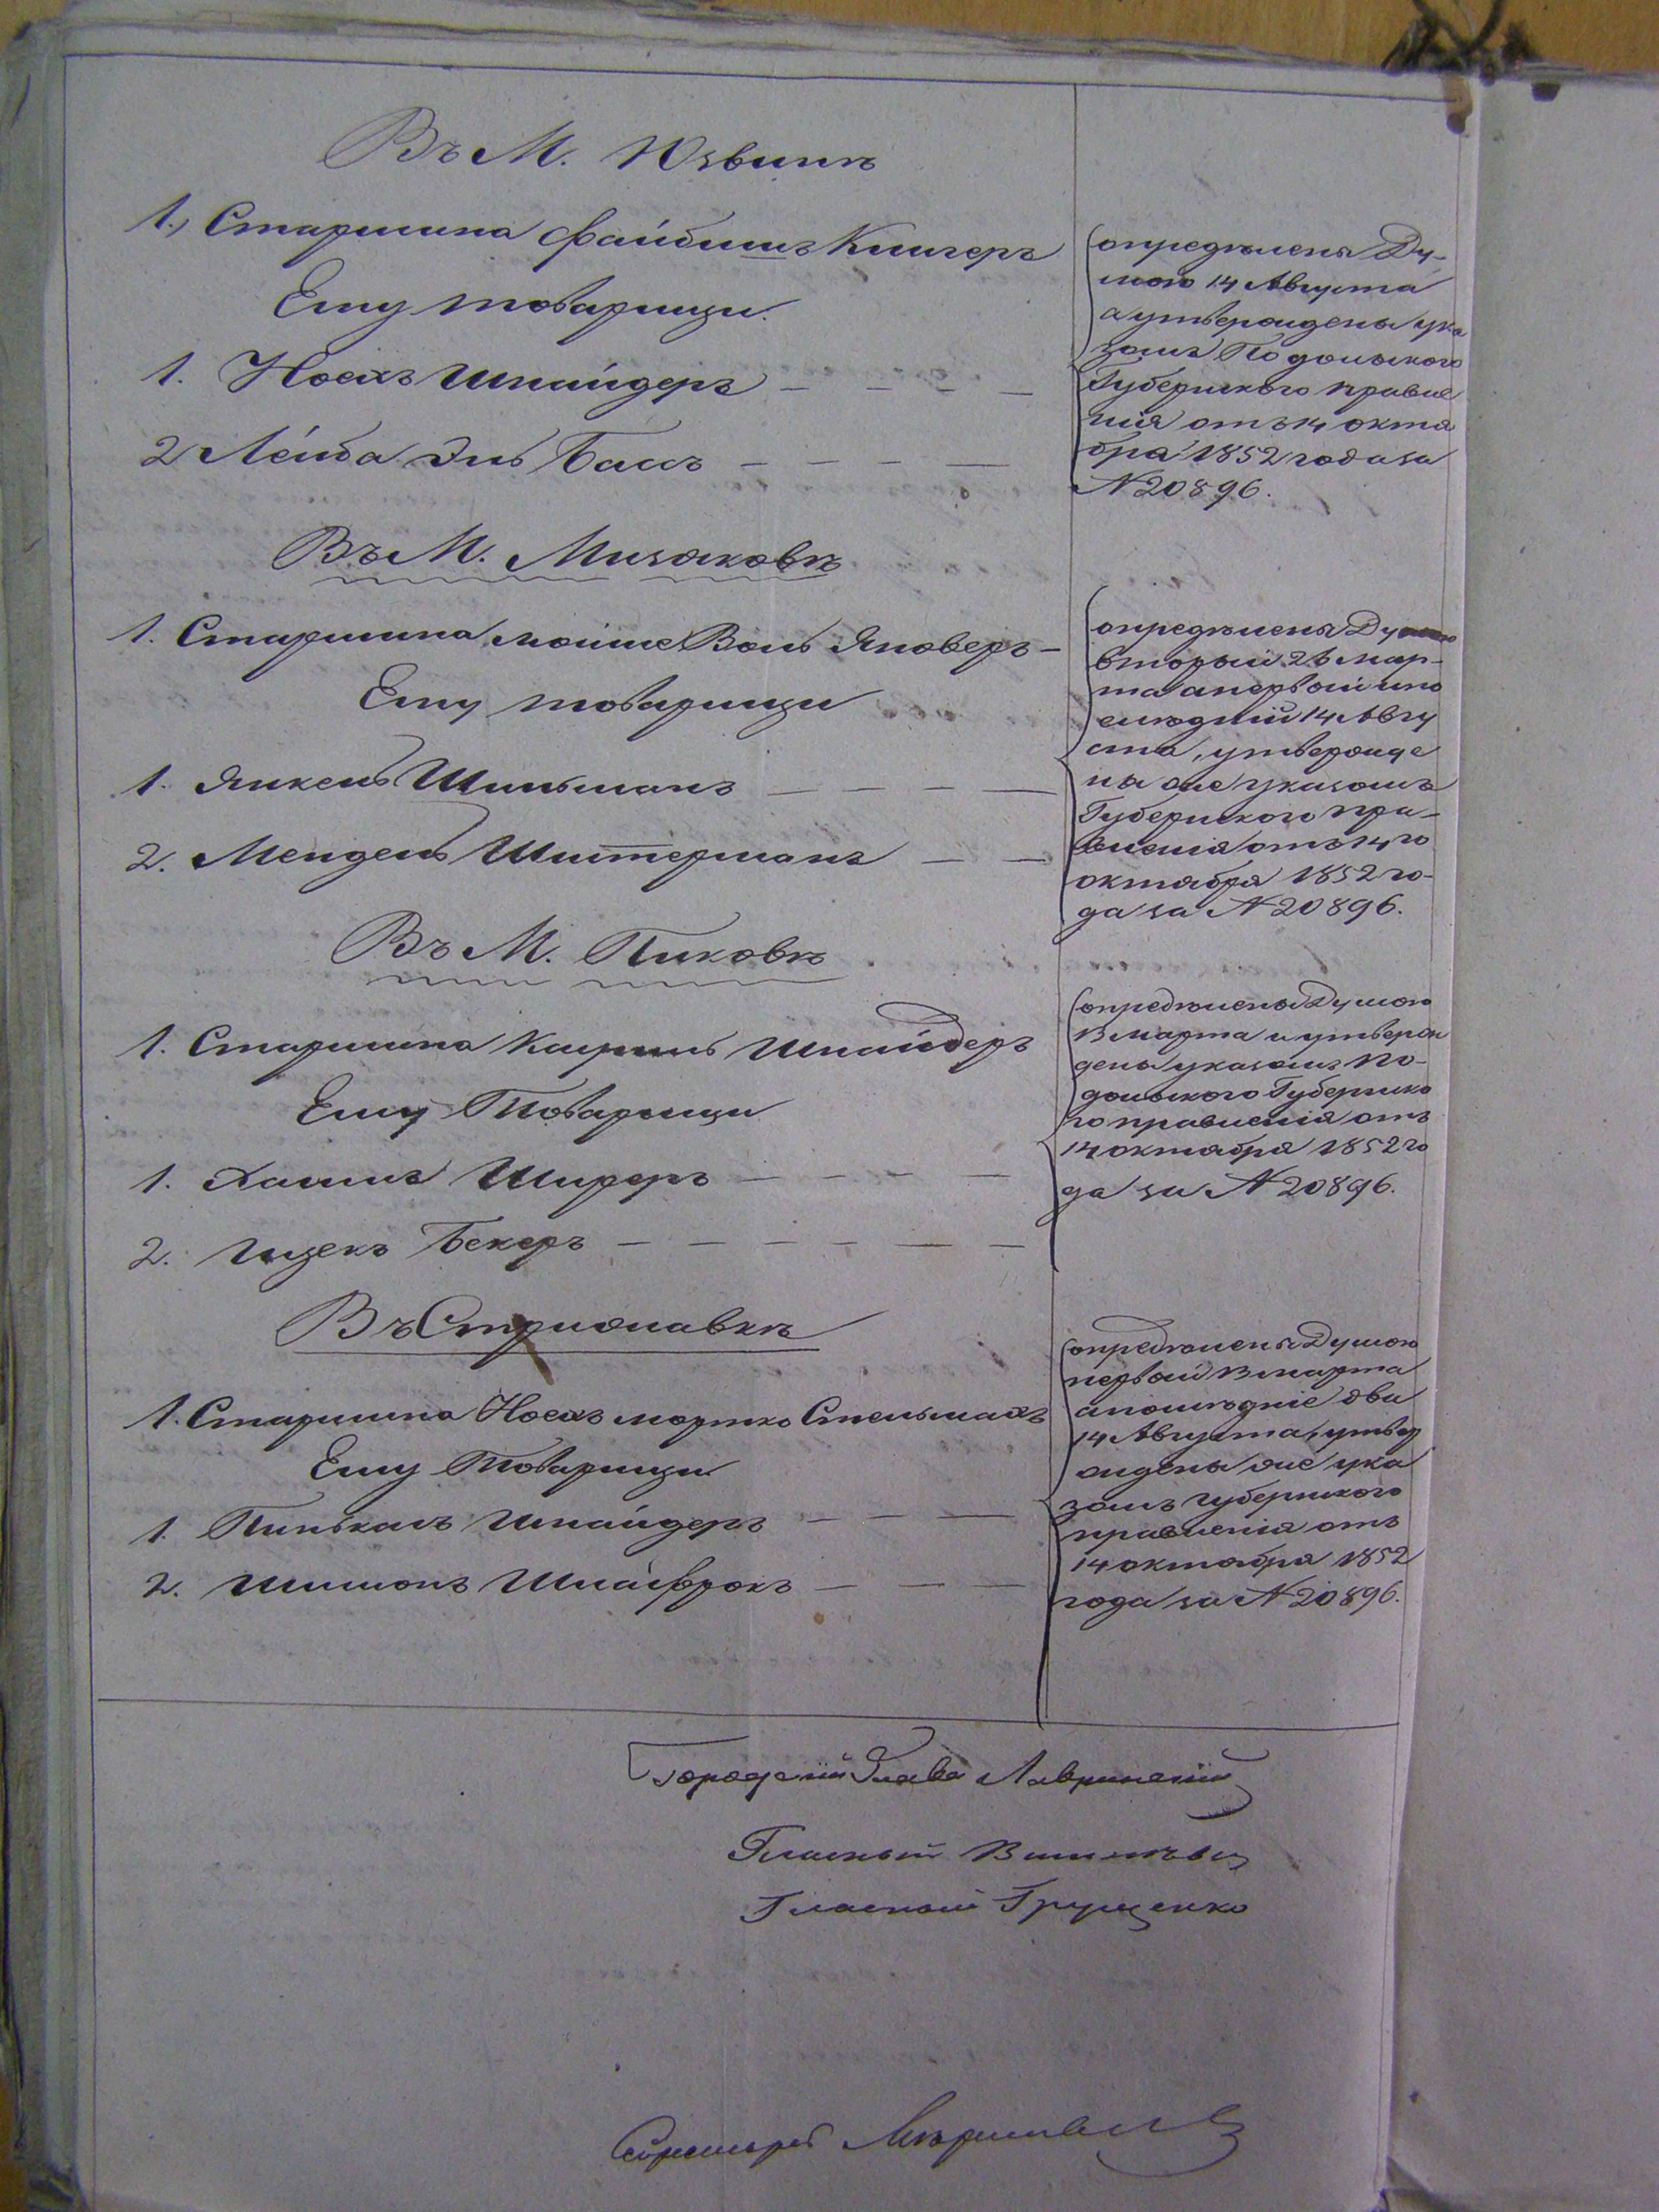 Въ М. Юзвинѣ
1., Старшина Файбишъ Клигеръ
Ему товарищи.
1. Ноехъ Шнайдеръ
2 Лейба Эль Басъ
опредѣлены Ду-
мою 14 Августа
а утверждены ука
зомъ Подольского
Губернского правле
нія отъ 14 октя
бря 1852 года за
№ 20896.
Въ М. Мизяковѣ
1. Старшина мойше Воль Яноверъ
Ему товарищи
1. Янкель Шильманъ
2. Мендель Шистерманъ
опредѣлены Думою
вторый 26 мар-
та а первый и по
слѣдній 14 Авгу
ста, утвержде
ны же указомъ
Губернского пра-
вленія отъ 14го
октября 1852 го-
да за № 20896.
Въ М. Пиковѣ
1. Старшина Шнайдеръ
Ему Товарищи
1. Хаимъ Ширеръ
2. Ицекъ Бекеръ
опредѣлены Думою
13 марта и утверж
дены указомъ По-
дольского Губернско
го правленія отъ
14 октября 1852 го
да за № 20896.
Въ Стрижавкѣ
1. Старшина Ноехъ мортко Стельмахъ
Ему Товарищи
1. Пинькасъ Шнайдеръ
2. Шимонъ Шлайфрокъ
опредѣлены Думою
первый 13 марта
а послѣдніе два
14 Августа, утвер
ждены же ука
зомъ Губернского
правленія отъ
14 октября 1852
года за № 20896.
Городской Глава Лавринскій
Гласный
Гласный Грущенко
Секретарь